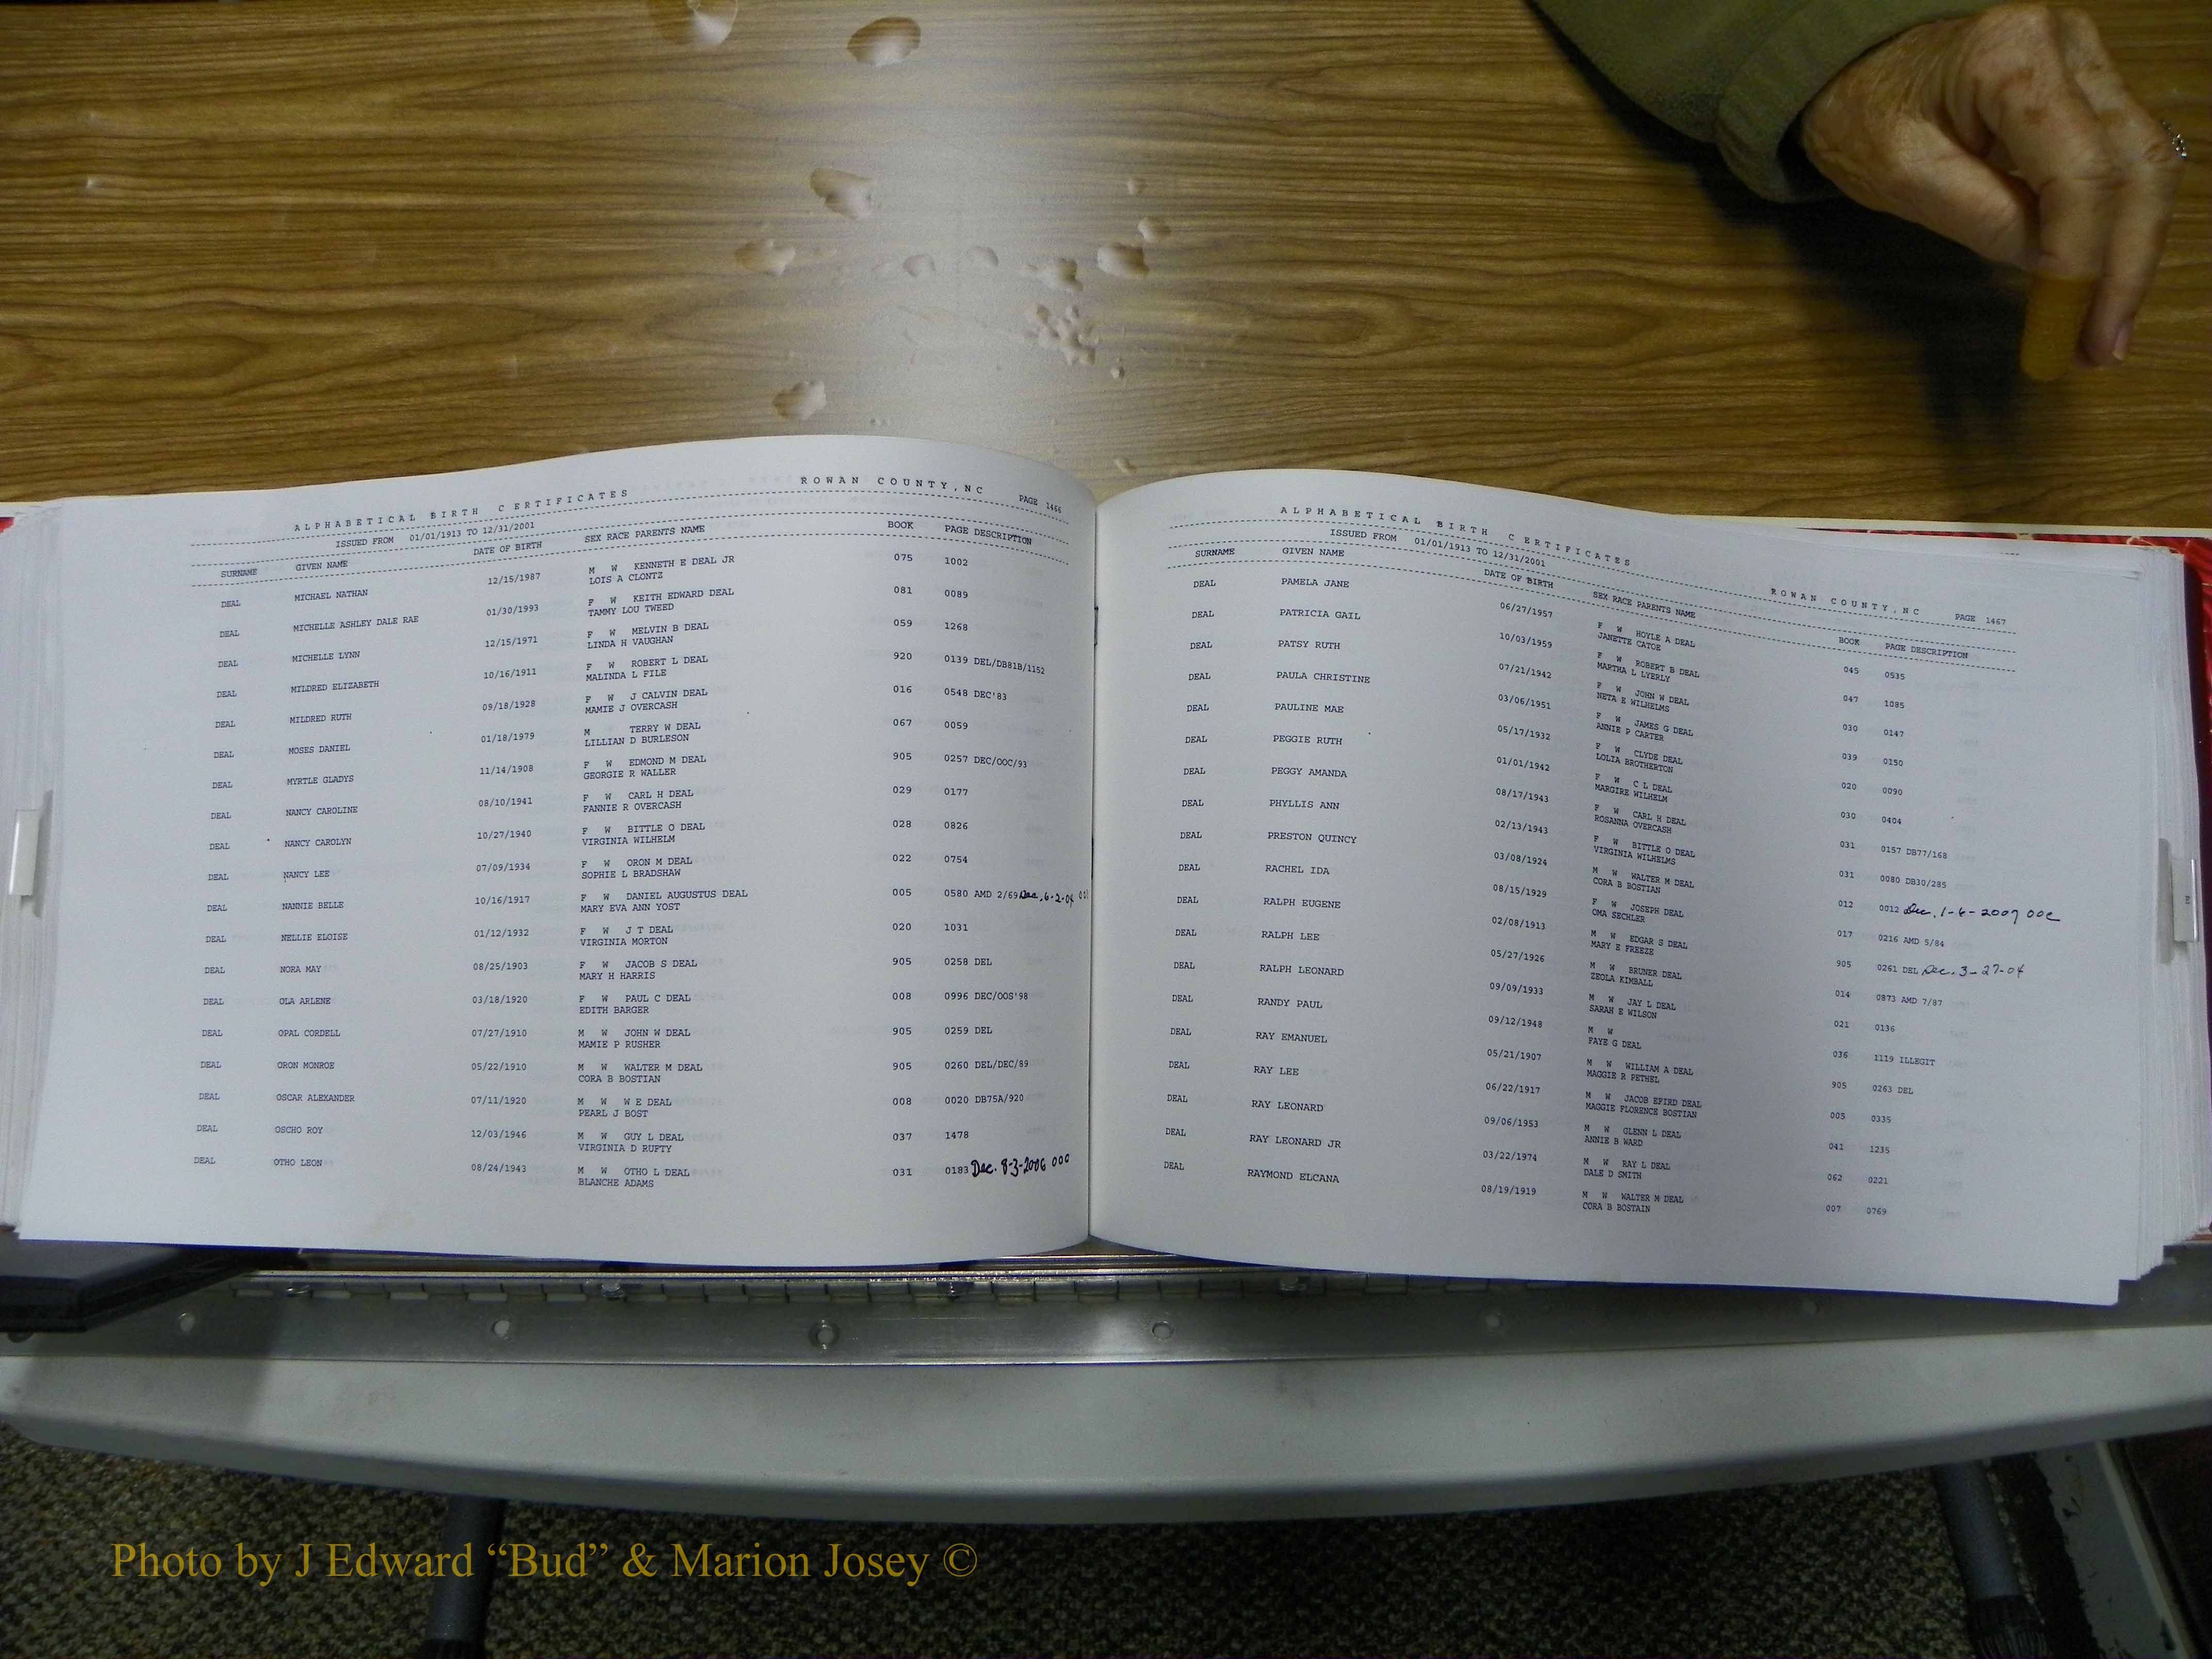 ALPHABETICAL BIRTH CERTIFICATES ROWAN COUNTY, NC PAGE 1466
ISSUED FROM 01/01/1913 TO 12/31/2001
SURNAME GIVEN NAME DATE OF BIRTH SEX RACE PARENTS NAME BOOK PAGE DESCRIPTION
DEAL MICHAEL NATHAN 12/15/1987 M W KENNETH E DEAL JR 075 1002
LOIS A CLONTZ
DEAL MICHELLE ASHLEY DALE RAE 01/30/1993 F W KEITH EDWARD DEAL 081 0089
TAMMY LOU TWEED
DEAL MICHELLE LYNN 12/15/1971 F W MELVIN B DEAL 059 1268
LINDA H VAUGHAN
DEAL MILDRED ELIZABETH 10/16/1911 F W ROBERT L DEAL 920 0139 DEL/DB81B/1152
MALINDA L FILE
DEAL MILDRED RUTH 09/18/1928 F W J CALVIN DEAL 016 0548 DEC'83
MAMIE J OVERCASH
DEAL MOSES DANIEL 01/18/1979 M TERRY W DEAL 067 0059
LILLIAN D BURLESON
DEAL MYRTLE GLADYS 11/14/1908 F W EDMOND M DEAL 905 0257 DEC/OOC/93
GEORGIE R WALLER
DEAL NANCY CAROLINE 08/10/1941 F W CARL H DEAL 029 0177
FANNIE R OVERCASH
DEAL NANCY CAROLYN 10/27/1940 F W BITTLE O DEAL 028 0826
VIRGINIA WILHELM
DEAL NANCY LEE 07/09/1934 F W ORON M DEAL 022 0754
SOPHIE L BRADSHAW
DEAL NANNIE BELLE 10/16/1917 F W DANIEL AUGUSTUS DEAL 005 0580 AMD 2/69 Dec. 6-2-04
MARY EVA ANN YOST
DEAL NELLIE ELOISE 01/12/1932 F W J T DEAL 020 1031
VIRGINIA MORTON
DEAL NORA MAY 08/25/1903 F W JACOB S DEAL 905 0258 DEL
MARY H HARRIS
DEAL OLA ARLENE 03/18/1920 F W PAUL C DEAL 008 0996 DEC/OOS'98
EDITH BARGER
DEAL OPAL CORDELL 07/27/1910 M W JOHN W DEAL 905 0259 DEL
MAMIE P RUSHER
DEAL ORON MONROE 05/22/1910 M W WALTER M DEAL 905 0260 DEL/DEC/89
CORA B BOSTIAN
DEAL OSCAR ALEXANDER 07/11/1920 M W W E DEAL 008 0020 DB75A/920
PEARL J BOST
DEAL OSCHO ROY 12/03/1946 M W GUY L DEAL 037 1478
VIRGINIA D RUFTY
DEAL OTHO LEON 08/24/1943 M W OTHO L DEAL 031 0183 Dec. 8-3-2006 000
BLANCHE ADAMS
ALPHABETICAL BIRTH CERTIFICATES ROWAN COUNTY, NC PAGE 1467
ISSUED FROM 01/01/1913 TO 12/31/2001
SURNAME GIVEN NAME DATE OF BIRTH SEX RACE PARENTS NAME BOOK PAGE DESCRIPTION
DEAL PAMELA JANE 06/27/1957 F W HOYLE A DEAL 045 0535
JANETTE CATOE
DEAL PATRICIA GAIL 10/03/1959 F W ROBERT B DEAL 047 1085
MARTHA L LYERLY
DEAL PATSY RUTH 07/21/1942 F W JOHN W DEAL 030 0147
NETA E WILHELMS
DEAL PAULA CHRISTINE 03/06/1951 F W JAMES G DEAL 039 0150
ANNIE P CARTER
DEAL PAULINE MAE 05/17/1932 F W CLYDE DEAL 020 0090
LOLIA BROTHERTON
DEAL PEGGIE RUTH 01/01/1942 F W C L DEAL 030 0404
MARGIRE WILHELM
DEAL PEGGY AMANDA 08/17/1943 F W CARL H DEAL 031 0157 DB77/168
ROSANNA OVERCASH
DEAL PHYLLIS ANN 02/13/1943 F W BITTLE O DEAL 031 0080 DB30/285
VIRGINIA WILHELMS
DEAL PRESTON QUINCY 03/08/1924 M W WALTER M DEAL 012 0012 Dec. 1-6-2007 OOC
CORA B BOSTIAN
DEAL RACHEL IDA 08/15/1929 F W JOSEPH DEAL 017 0216 AMD 5/84
OMA SECHLER
DEAL RALPH EUGENE 02/08/1913 M W EDGAR S DEAL 905 0261 DEL Dec. 3-27-04
MARY E FREEZE
DEAL RALPH LEE 05/27/1926 M W BRUNER DEAL 014 0873 AMD 7/87
ZEOLA KIMBALL
DEAL RALPH LEONARD 09/09/1933 M W JAY L DEAL 021 0136
SARAH E WILSON
DEAL RANDY PAUL 09/12/1948 M W 036 1119 ILLEGIT
FAYE G DEAL
DEAL RAY EMANUEL 05/21/1907 M W WILLIAM A DEAL 905 0263 DEL
MAGGIE R PETHEL
DEAL RAY LEE 06/22/1917 M W JACOB EFIRD DEAL 005 0335
MAGGIE FLORENCE BOSTIAN
DEAL RAY LEONARD 09/06/1953 M W GLENN L DEAL 041 1235
ANNIE B WARD
DEAL RAY LEONARD JR 03/22/1974 M W RAY L DEAL 062 0221
DALE D SMITH
DEAL RAYMOND ELCANA 08/19/1919 M W WALTER M DEAL 007 0769
CORA B BOSTAIN
Photo by J Edward “Bud” & Marion Josey ©